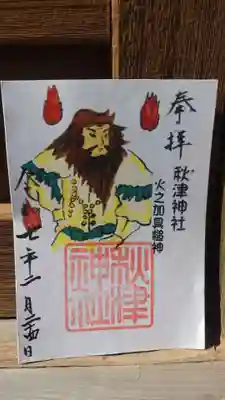 奉拝
秋津神社
火之加具槌神
七年二月二十四日
秋津
神社